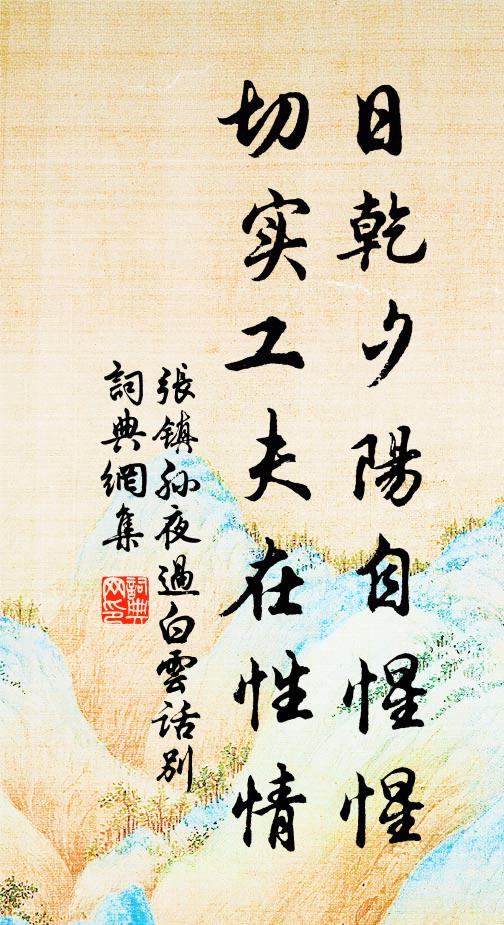 日乾夕陽自惺惺
切实工夫在性情
張鎮孙夜過白雲話別
詞典網集
詞典
网印